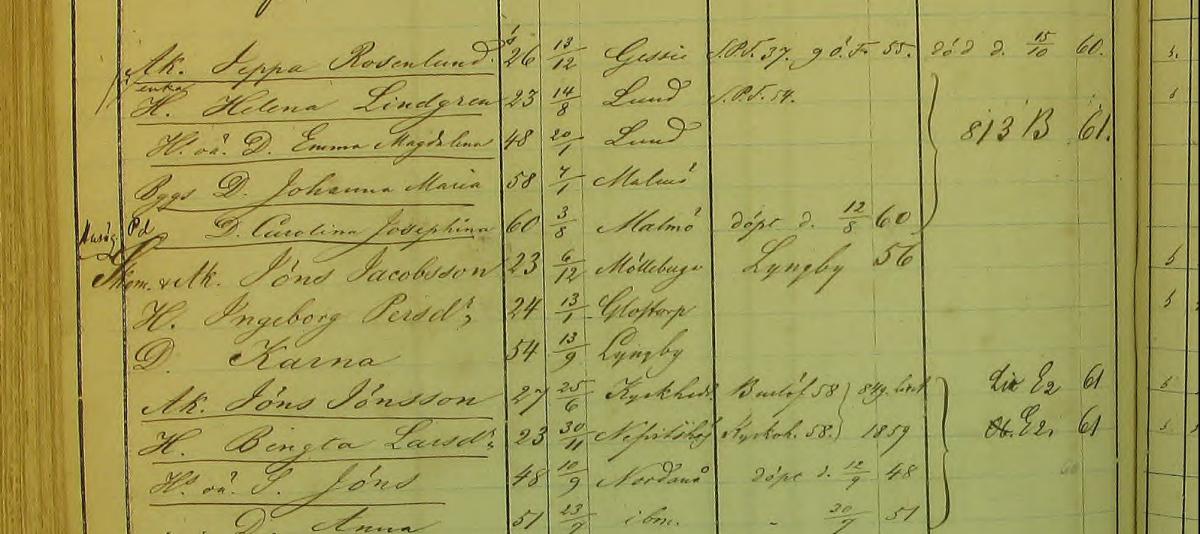 Åk. Jeppa Rosenlund. 26 13/12 Gessie S.P.F. 37. 55. död d. 15/10 60.
enka
H. Helena Lindgren 23 14/8 Lund S.P.F. 54.
H. oä. D. Emma Magdalena 48 20/1 Lund 813 B 61.
Byggs D. Johanna Maria 58 7/1 Malmö
D. Carolina Josephina 60 3/8 Malmö döpt d. 12/8 60
Åk. Jöns Jacobsson 23 6/12 Lyngby 56
H. Ingeborg Persdr 24 13/1 Glostorp
D. Karna 54 13/9 Lyngby
Åk. Jöns Jönsson 27 25/6 Burlöf 58 E2 61
H. Bengta Larsdr 23 30/11 Kyrkoh. 58. 1859 E2. 61
Hs oä. S. Jöns 48 10/9 Nordanå döpt d. 12/9 48
D. Anna 51 23/7 ibm. 51